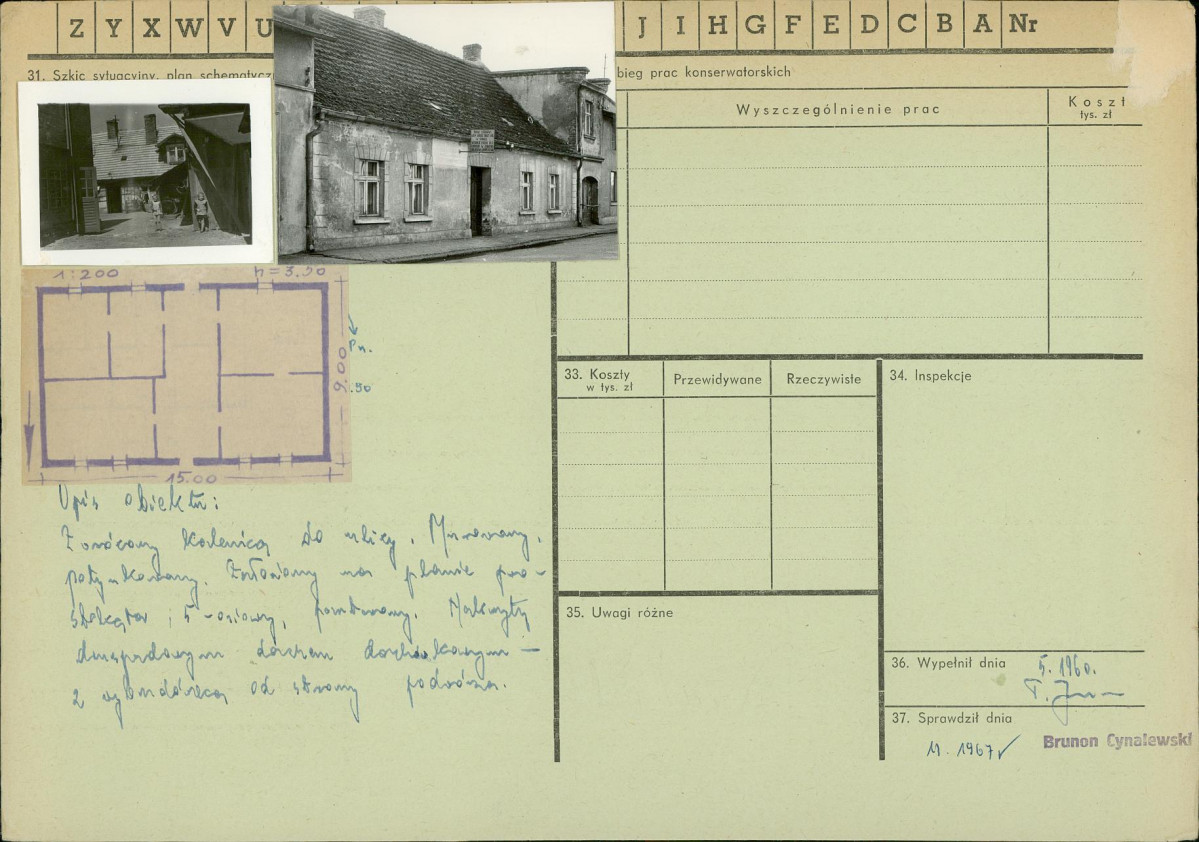 Z Y X W V U J I H G F E D C B A Nr
31. Szkic sytuacyjny, plan schematycz
bieg prac konserwatorskich
Wyszczególnienie prac
Koszt
tys. zł
1:200 h=3.50
Pn.
9.00
.50
15.00
33. Koszty
w tys. zł
Przewidywane
Rzeczywiste
34. Inspekcje
Opis obiektu:
Zwrócony kalenicą do ulicy. Murowany,
potynkowany. Założony na planie pro-
stokąta, 5-osiowy, parterowy. Nakryty
dwuspadowym dachem dachówkowym –
z wyondówką od strony podwórza.
35. Uwagi różne
36. Wypełnił dnia 5.1960.
37. Sprawdził dnia
11.1967
Brunon Cynalewski